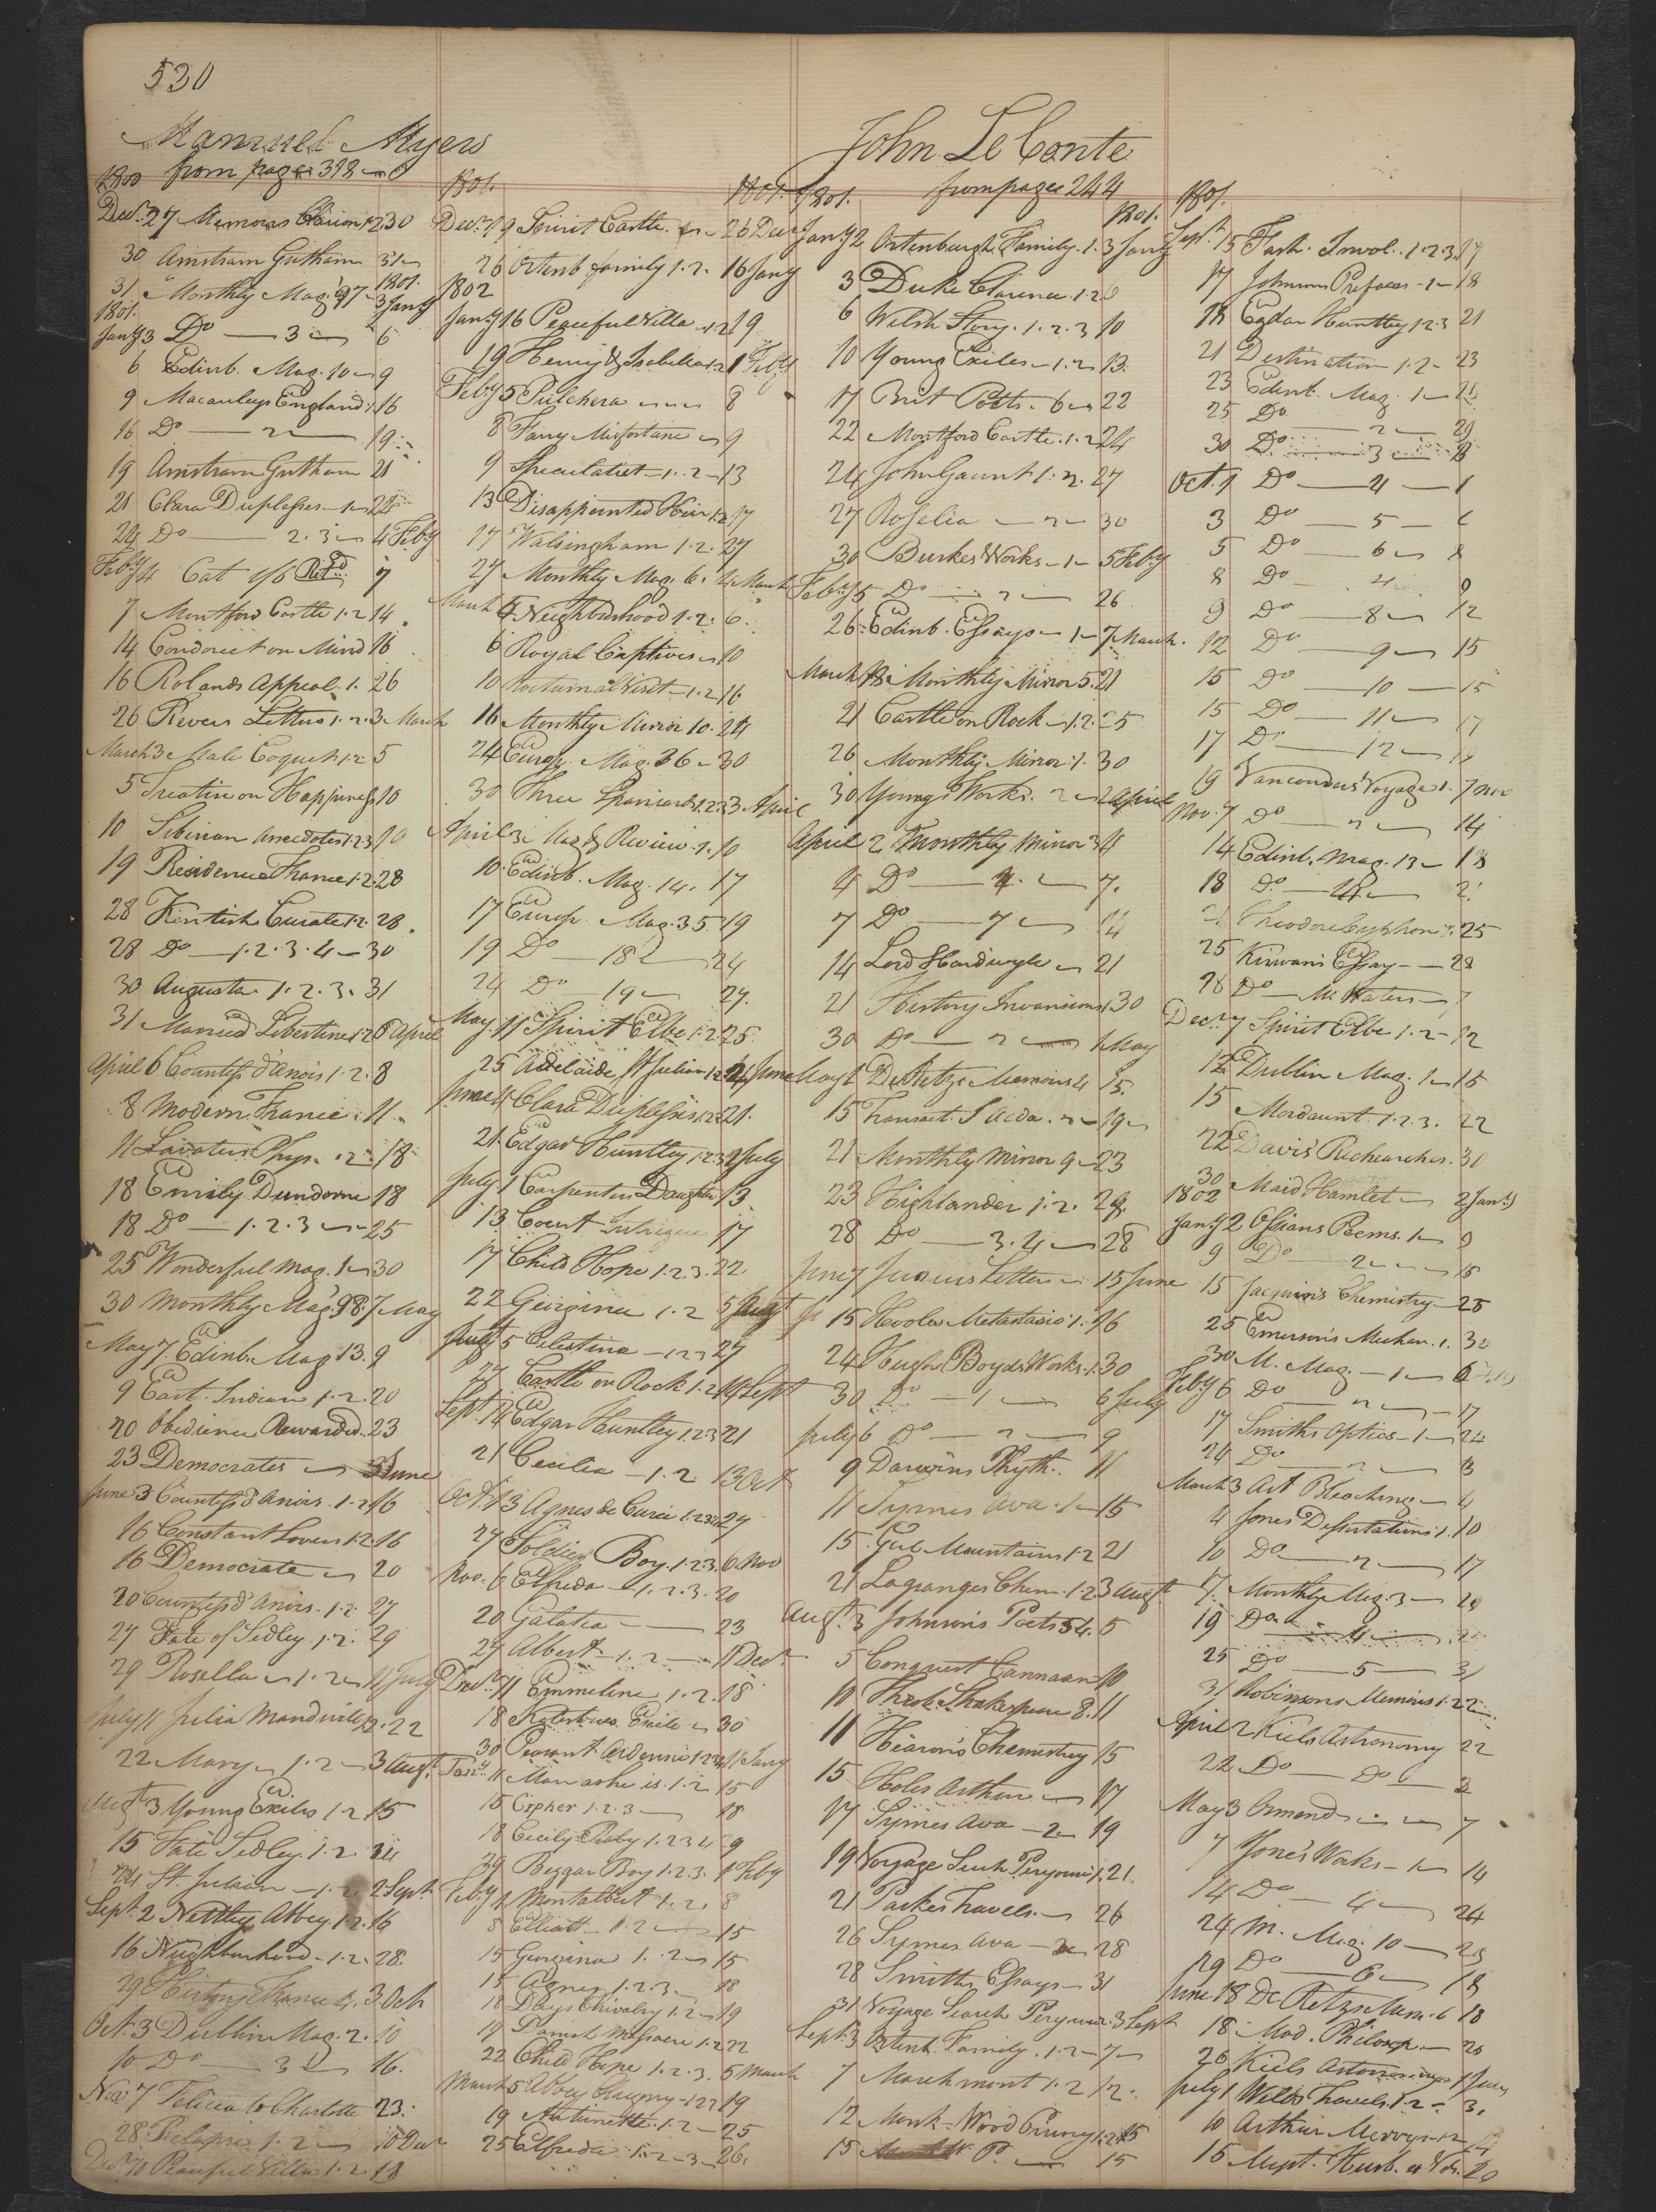 530
Manuel Myers
from page 398
1800
Decr. 27 Memoirs Clarion 1.2 30
30 Amstram Gutham 31
31 Monthly Mag. 97 1801. 3 Jany
1801.
Jany 3 Do — 3 — 6
6 Edinb. Mag. 10 — 9
9 Macauleys England 1. 16
16 Do — 2 — 19
19 Amstram Gutham 21
21 Clara Duplessis — 1 — 24
24 Do — 2.3 — 4 Feby
Feby 4 Cat 1/6 Retd. 7
7 Montford Castle 1.2 14
14 Condorcet on Mind 16
16 Rolands Appeal. 1. 26
26 Letters 1.2. 3 March
March 3 Male Coquet 1.2 5
5 Treatise on Happiness 10
10 Siberian Anecdotes 1.2.3 19
19 Residence France 1.2. 28
28 Kentish Curate 1.2. 28
28 Do — 1.2.3.4 — 30
30 Augusta 1.2.3. 31
31 Married Libertine 1.2 6 April
April 6 Countess d'Anois 1.2. 8
8 Modern France. 11
11 Lavaters Phys. 2 18
18 Emily Dundorne 18
18 Do — 1.2.3 — 25
25 Wonderful Mag. 1 — 30
30 Monthly Mag. 98. 7 May
May 7 Edinb. Mag. 13. 9
9 East Indian 1.2. 20
20 Obedience Rewarded. 23
23 Democrates — 3 June
June 3 Countess d'Anois. 1.2 16
16 Constant Lover 1.2 16
16 Democrate — 20
20 Countess d'Anois. 1.2. 27
27 Fate of Sedley. 1.2. 29
29 Rosella — 1.2 — 11 July
July 11 Julia Mandeville 22
22 Mary — 1.2 — 3 Augt.
Augt 3 Young Exiles 1.2 15
15 Fate Sedley. 1.2. 24
24 St. Julien — 1.2. 2 Sept.
Sept. 2 Nettley Abbey. 1.2. 16
16 Neighbourhood — 1.2. 28.
29 History France 4. 3 Oct
Oct. 3 Dublin Mag. 2. 10
10 Do — 3 — 16.
Nov 7 Felicia to Charlotte 23.
28 Relapse 1.2 — 10 Decr
Decr 10 Peaceful Villa 1.2 18
1801.
Decr. 19 Spirit Castle. 26 Decr
26 Ortenb family 1.2. 16 Jany
1802
Jany 16 Peaceful Villa 1.2 19
19 Henry & Isabella 1.2 1 Feby
Feby 5 Pulchera — 8
8 Fanny Misfortune 9
9 Speculator — 1.2 — 13
13 Disappointed Heir 1.2 17
17 Walsingham 1.2. 27
27 Monthly Mag. 6. 4 March
March 4 Neighbourhood 1.2. 6
6 Royal Captives — 10
10 Nocturnal Visit — 1.2 16
16 Monthly Mirror 10. 24
24 Europ. Mag. 36 — 30
30 Three Spaniards 1.2.3 3 April
April 3 Mag & Review. 1. 10
10 Edinb. Mag. 14. 17
17 Europ. Mag. 35. 19
19 Do — 18 — 24
24 Do — 19 — 27.
May 11 Spirit Elbe 1.2. 25
25 Adelaide St Julien 1.2 4 June
June 4 Clara Duplessis 1.2.3 21.
21. Edgar Huntley 1.2.3 1 July
July 1 Carpenters Daughter 13
13 Count Intrigue 17
17 Child Hope 1.2.3. 22.
22 Georgina 1.2 5 Augt
Augt 5 Celestina — 1.2.3 27
27 Castle on Rock 1.2 14 Sept
Sept. 14 Edgar Huntley 1.2.3 21
21 Cecilia — 1.2 13 Oct
Oct. 13 Agnes de Curci 1.2.3.4 27
27 Soldier Boy. 1.2.3. 6 Nov
Nov. 6 Elfreda — 1.2.3. 20
20 Galatea — 23
27 Albert — 1.2 — 11 Decr
Decr. 11 Emmeline 1.2. 18
18 Exile — 30
30 Peasant Ardennes 1.2.3.4 11 Jany
Jany. 11 Man as he is. 1.2 15
15 Cipher 1.2.3 — 18
18 Cecily Raby 1.2.3.4 9
29 Beggar Boy 1.2.3. 1 Feby
Feby 1 Montalbert 1.2. 8
8 Elliott — 1.2 — 15
15 Georgina 1.2 — 15
15 Agnes 1.2.3 — 18
18 Days Chivalry 1.2 — 19
19 Parish Massacre 1.2 22
22 Child Hope 1.2.3. 5 March
March 5 Abbey Clugny — 1.2.3 19
19 Antoinette. 1.2 — 25
25 Elfreda 1.2 — 3 — 26.
John Le Conte
from page 244
1801.
Jany 2 Ortenburgh Family. 1. 3 Jany
3 Duke Clarence. 1.2 6
6 Welsh Story. 1.2.3 10
10 Young Exiles — 1.2 — 13.
17 Brit Poets — 6 — 22
22 Montford Castle. 1.2 24
24 John Gaunt 1.2. 27
27 Roselia — 2 — 30
30 Burkes Works — 1 — 5 Feby
Feby 5 Do — 2 — 26
26 Edinb. Essays — 1 — 7 March.
March 18 Monthly Mirror 5. 21
21 Castle on Rock — 1.2. 25
26 Monthly Mirror. 1. 30
30 Youngs Works. 2 — 2 April
April 2 Monthly Mirror 3 4
4 Do — 4. — 7.
7 Do — 7 — 14
14 Lord Hardwyle — 21
21 History Invasions 1. 30
30 Do — 2 — 1 May
May 1 De Retzs Memoirs 4 15.
15 Transact. S Acda. — 2 — 19
21 Monthly Mirror 9 — 23
23 Highlander 1.2. 28.
28 Do — 3.4 — 28
June 7 Junius Letters — 15 June
15 Hooles Metastasio 1. 16
24 Hugh Boyds Works. 1. 30
30 Do — 1 — 6 July
July 6 Do — 2 — 9
9 Darwins Phyth. 11
11 Symes Ava. 1 — 15
15 Gul Mountains 1.2 21
21 Lagranges Chem. 1.2. 3 Augt
Augt. 3 Johnsons Poets 54. 5
5 Conquest Cannaan 10
10 Theob. Shakespeare 8. 11
11 Hearons Chemistry 15
15 Holes Arthur — 17
17 Symes Ava — 2 — 19
19 Voyage Search Perouse 1. 21.
21 Parkes Travels. — 26
26 Symes Ava — 3 — 28
28 Smiths Essays — 31
31 Voyage Search Perouse 3 Sept
Sept. 3 Ortenb. Family. 1.2 — 7
7 Marchmont 1.2 12
12 Monk Wood Priory 1.2 15
15 P. — 15
1801.
Sept. 15 Fash. Invol. 1.2.3. 17
17 Johnsons Prefaces — 1 — 18
18 Edgar Huntley 1.2.3 21
21 Destination 1.2 — 23
23 Edinb. Mag. 1 — 25
25 Do — 2 — 29
30 Do — 3 — 8
Oct. 1 Do — 4 — 1
3 Do — 5 — 6
5 Do — 6 — 8
8 Do — 9
9 Do — 8 — 12
12 Do — 9 — 15
15 Do — 10 — 15
15 Do — 11 — 17
17 Do — 12 — 19
19 Vancouvers Voyage 1. 7 Nov
Nov. 7 Do — 2 — 14
14 Edinb. Mag. 13 — 18
18 Do — 14 — 21
21 Theodore Cyphon 1. 25
25 Kirwans Essay — 28
28 Do — M. Waters — 7
Decr. 7 Spirit Elbe 1.2 — 12
12 Dublin Mag. 1 — 15
15 Mordaunt 1.2.3. 22
22 Davis Reshearches. 31
30 Maid Hamlet — 2 Jany
1802
Jany 2 Ossians Poems. 1 — 9
9 Do — 2 — 15
15 Jacquins Chemistry — 25
25 Emersons Mechan. 1. 30
30 M. Mag. — 1 — 6 Feby
Feby 6 Do — 2 — 17
17 Smiths Optics — 1 — 24
24 Do — 2 — 3
March 3 Art Bleaching — 4
4 Jones Dessertations 1. 10
10 Do — 2 — 17
17. Monthly Mag. 3 — 20
19 Do — 4 — 25
25 Do — 5 — 31
31 Robinsons Memoirs 1.2 2
April 2 Kiels Astronomy 22
22 Do — Do — 2
May 3 Ormond — 7
7 Jone's Works — 1 — 14
14 Do — 4 — 24
24 M. Mag. 10 — 29
29 Do — 6 — 18
June 18 De Retzs Mem. 6 18
18 Mod. Philosop. — 26
26 Kiels Astronomy 1 July
July 1 Welds Travels. 1.2 — 3.
10 Arthur Mervyn 1.2
15 Myst. Husb. 4 Vol. 20